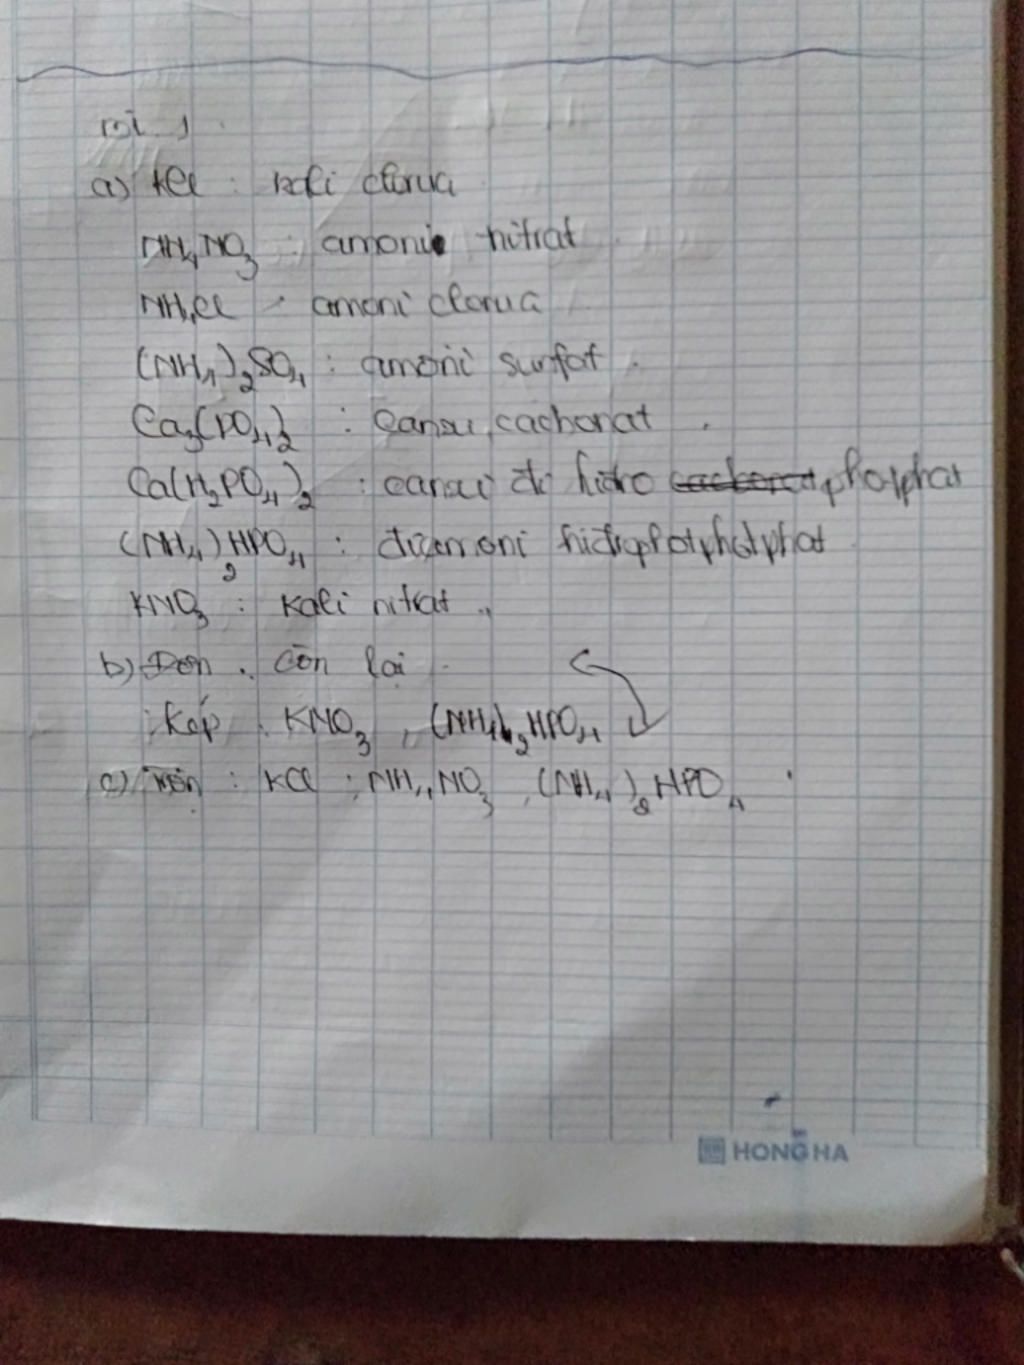 Bài 1
a) KCl : kali clorua
NH4NO3 : amoni nitrat
NH4Cl : amoni clorua
(NH4)2SO4 : amoni sunfat.
Ca3(PO4)2 : canxi cacbonat.
Ca(H2PO4)2 : canxi đi hidro photphat
(NH4)2HPO4 : điamoni hidrophotphotphat
KNO3 : kali nitrat.
b) Đơn : còn lại
: Kép : KNO3 , (NH4)2HPO4
c) : KCl ; NH4NO3 , (NH4)2HPO4
HONG HA